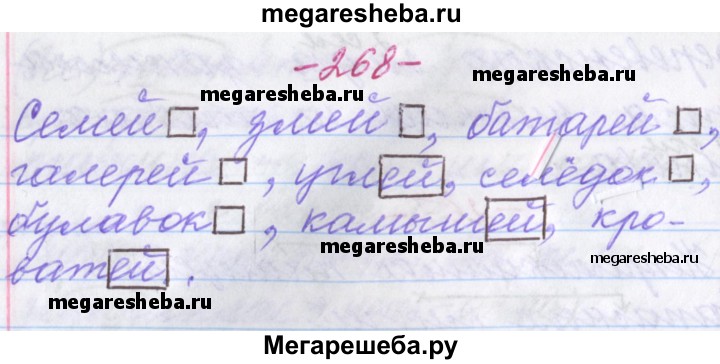 megaresheba.ru
-268-
megaresheba.ru
megaresheba.ru
Семей, змей, батарей,
галерей, углей, селёдок,
булавок, камышей, кро-
megaresheba.ru
megaresheba.ru
ватей.
megaresheba.ru
Мегарешеба.ру